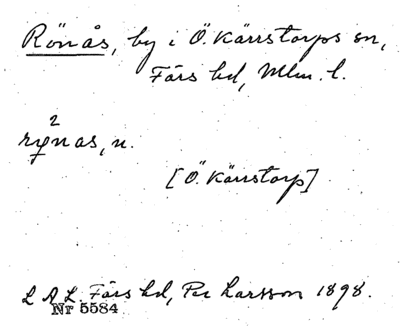 Rönås, by i Ö. Kärrstorps sn,
Färs hd, Mlm. l.
2
rȳnas, n.
[Ö. Kärrstorp]
L A L. Färs hd, Per Larsson 1898.
Nr 5584